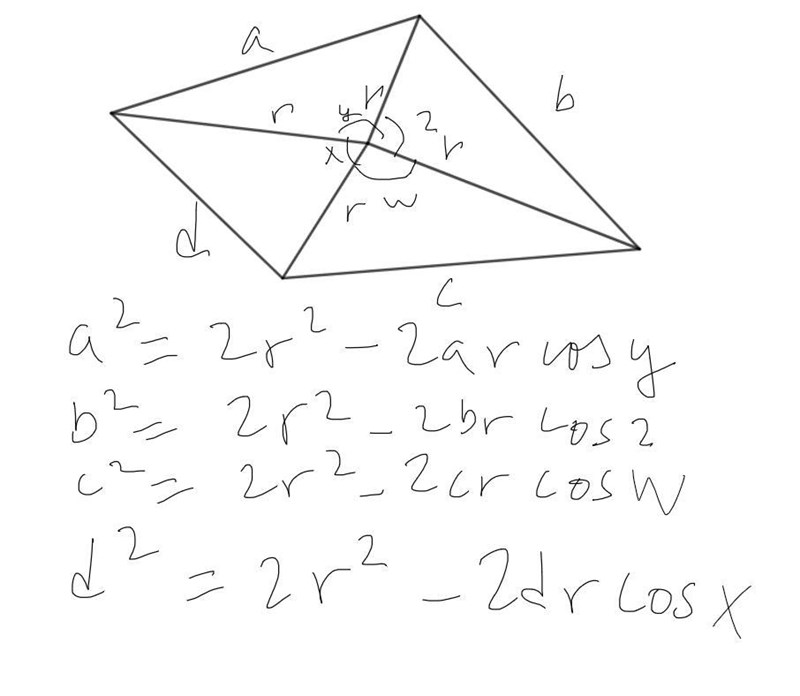 a
b
r
y
r
2
r
x
r
w
d
c
a² = 2r² - 2ar cos y
b² = 2r² - 2br cos 2
c² = 2r² - 2cr cos W
d² = 2r² - 2dr cos X